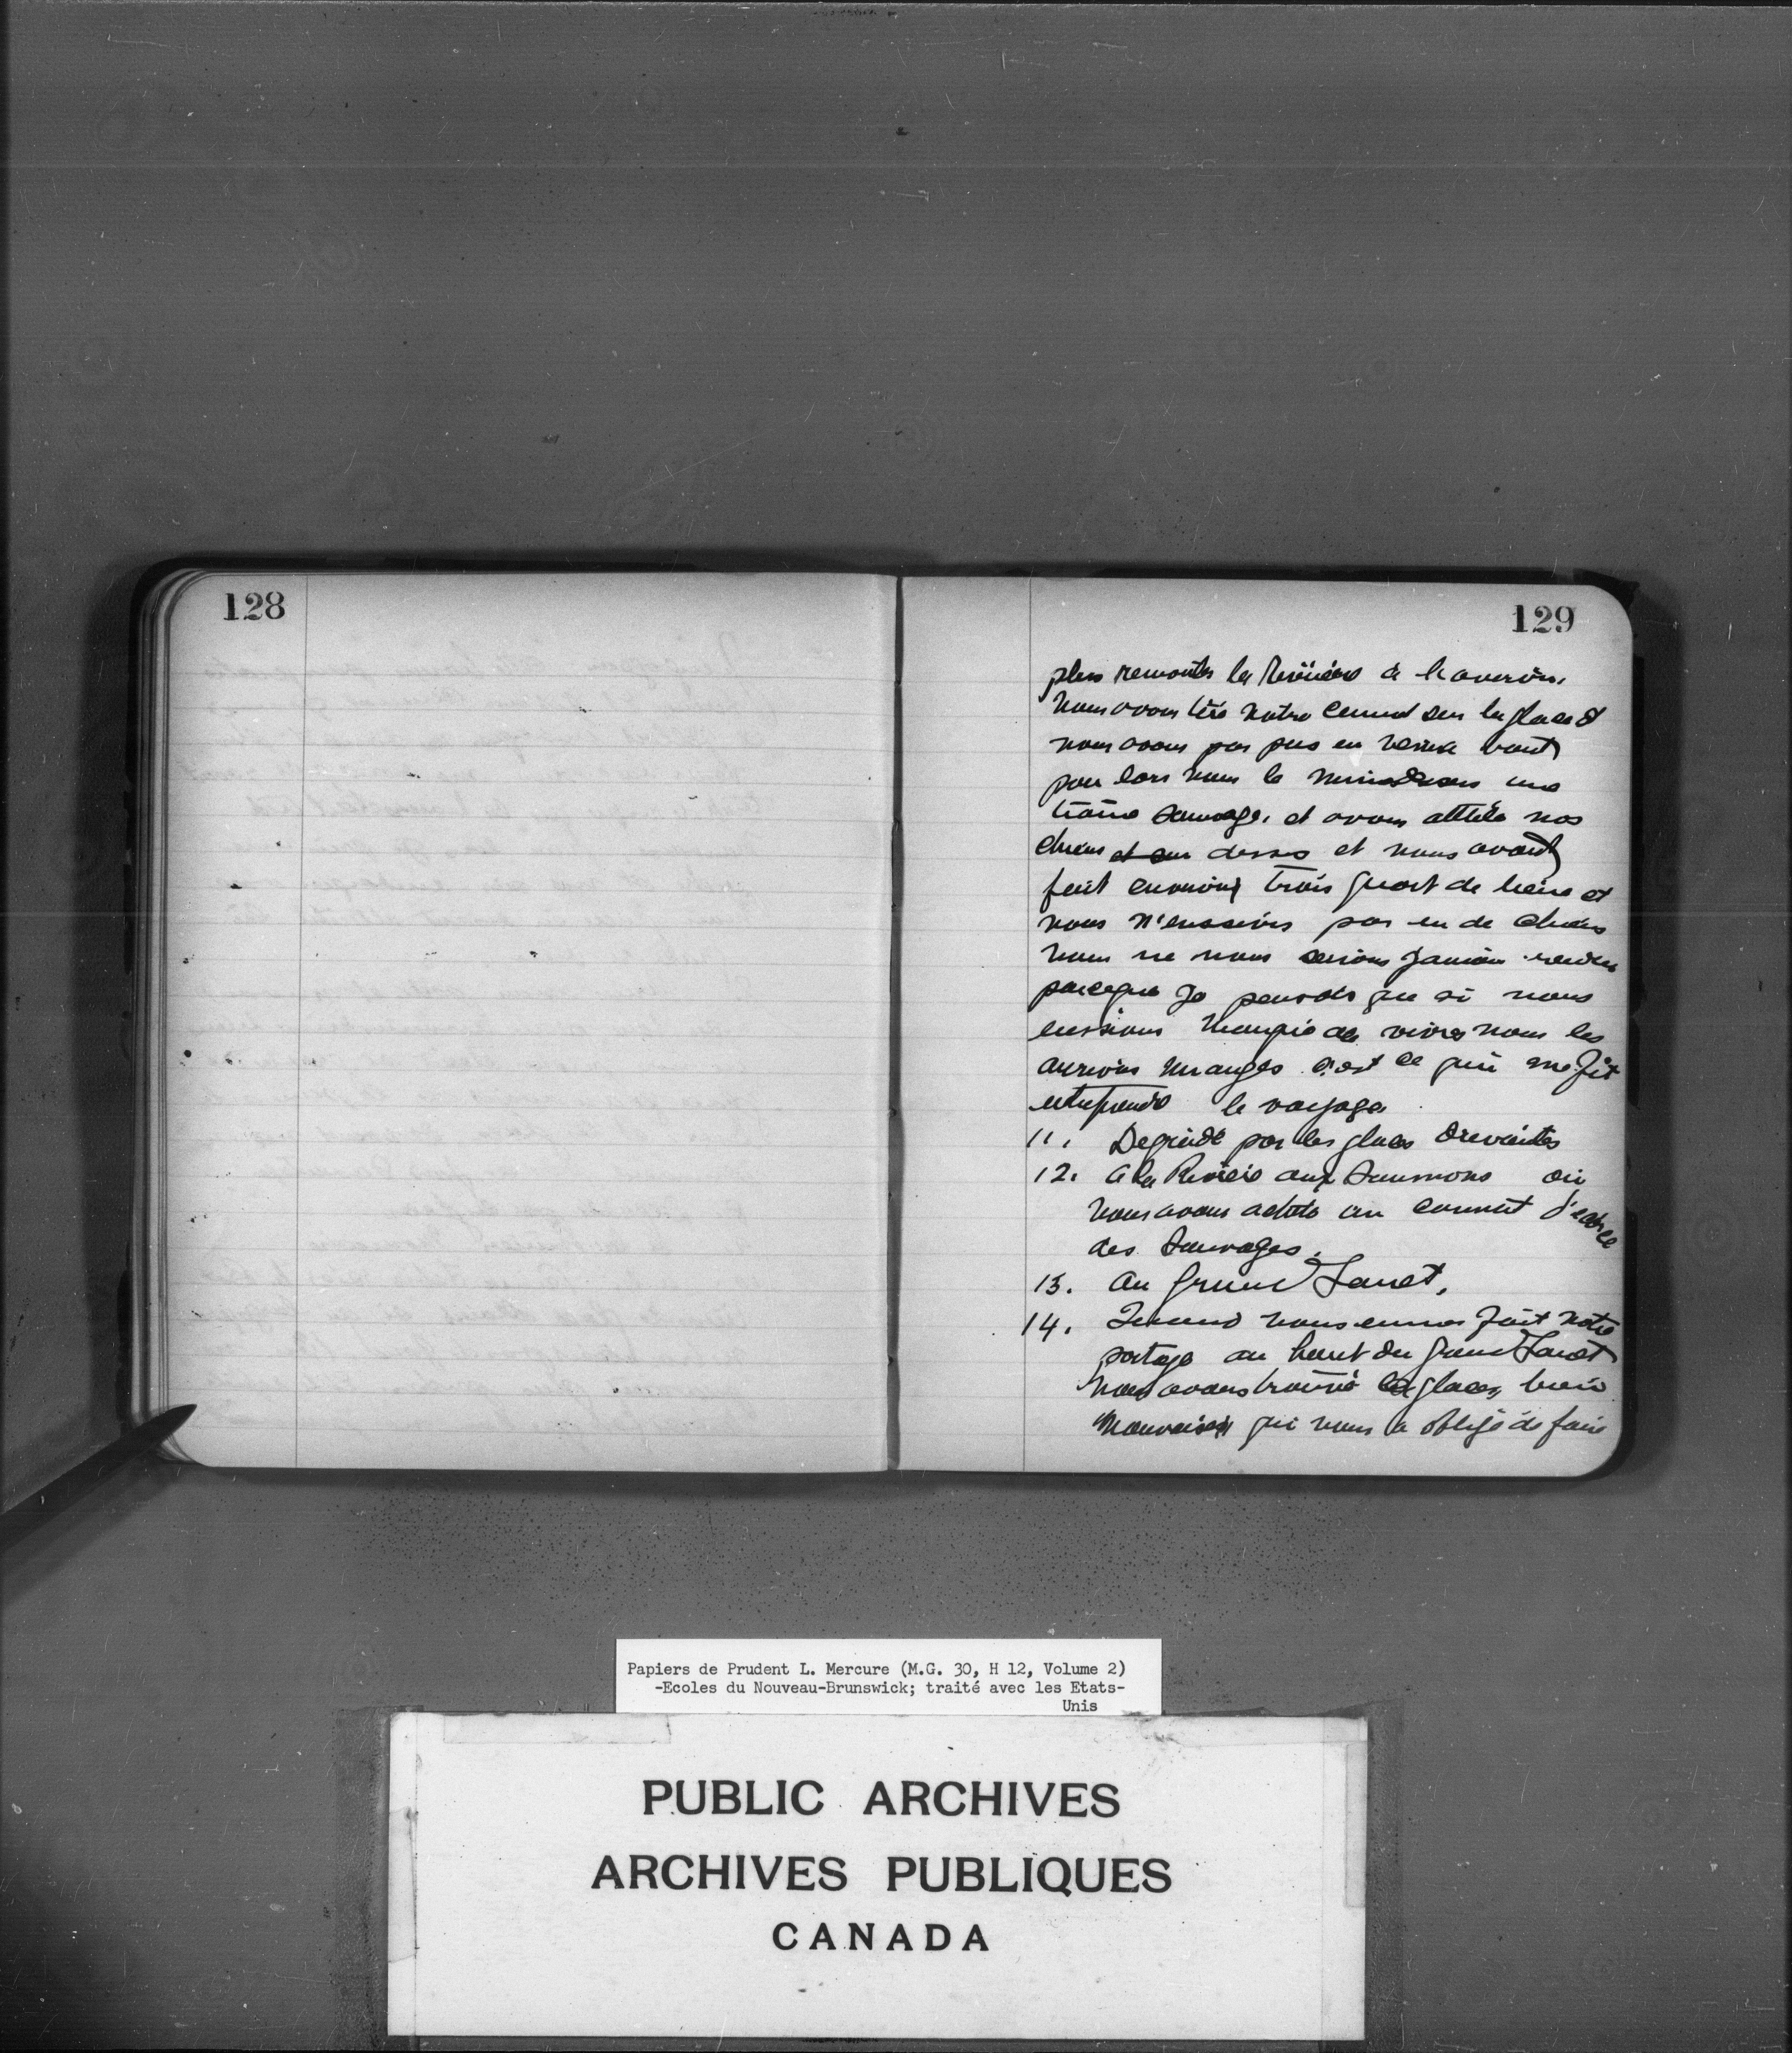 128
129
plus remonter la Rivière à l'aviron,
nous avons tiré notre cannot sur la glace et
nous avons pas pus en venire bout
pour lors nous la une
traine sauvage, et avons attélé nos
chiens et sur dessus et nous avons
fait environ trois quart de lieue et
nous n'eussions pas eu de chiens
nous ne nous serions jamais rendus
parceque je pensais que si nous
eussions manqué de vivres nous les
aurions mangés c'est ce qui me fit
entreprendre le voyage
11. Degradé par les glaces
12. a la Rivière aux Saumons où
nous avons acheté un cannot d'écorce
des Sauvages.
13. au Grand Sault,
14. Quand nous eumes fait notre
portage au haut du Grand Sault
nous avons trouvé les glaces bien
mauvaises qui nous a obligé de faire
Papiers de Prudent L. Mercure (M.G. 30, H 12, Volume 2)
-Ecoles du Nouveau-Brunswick; traité avec les Etats-
Unis
PUBLIC ARCHIVES
ARCHIVES PUBLIQUES
CANADA